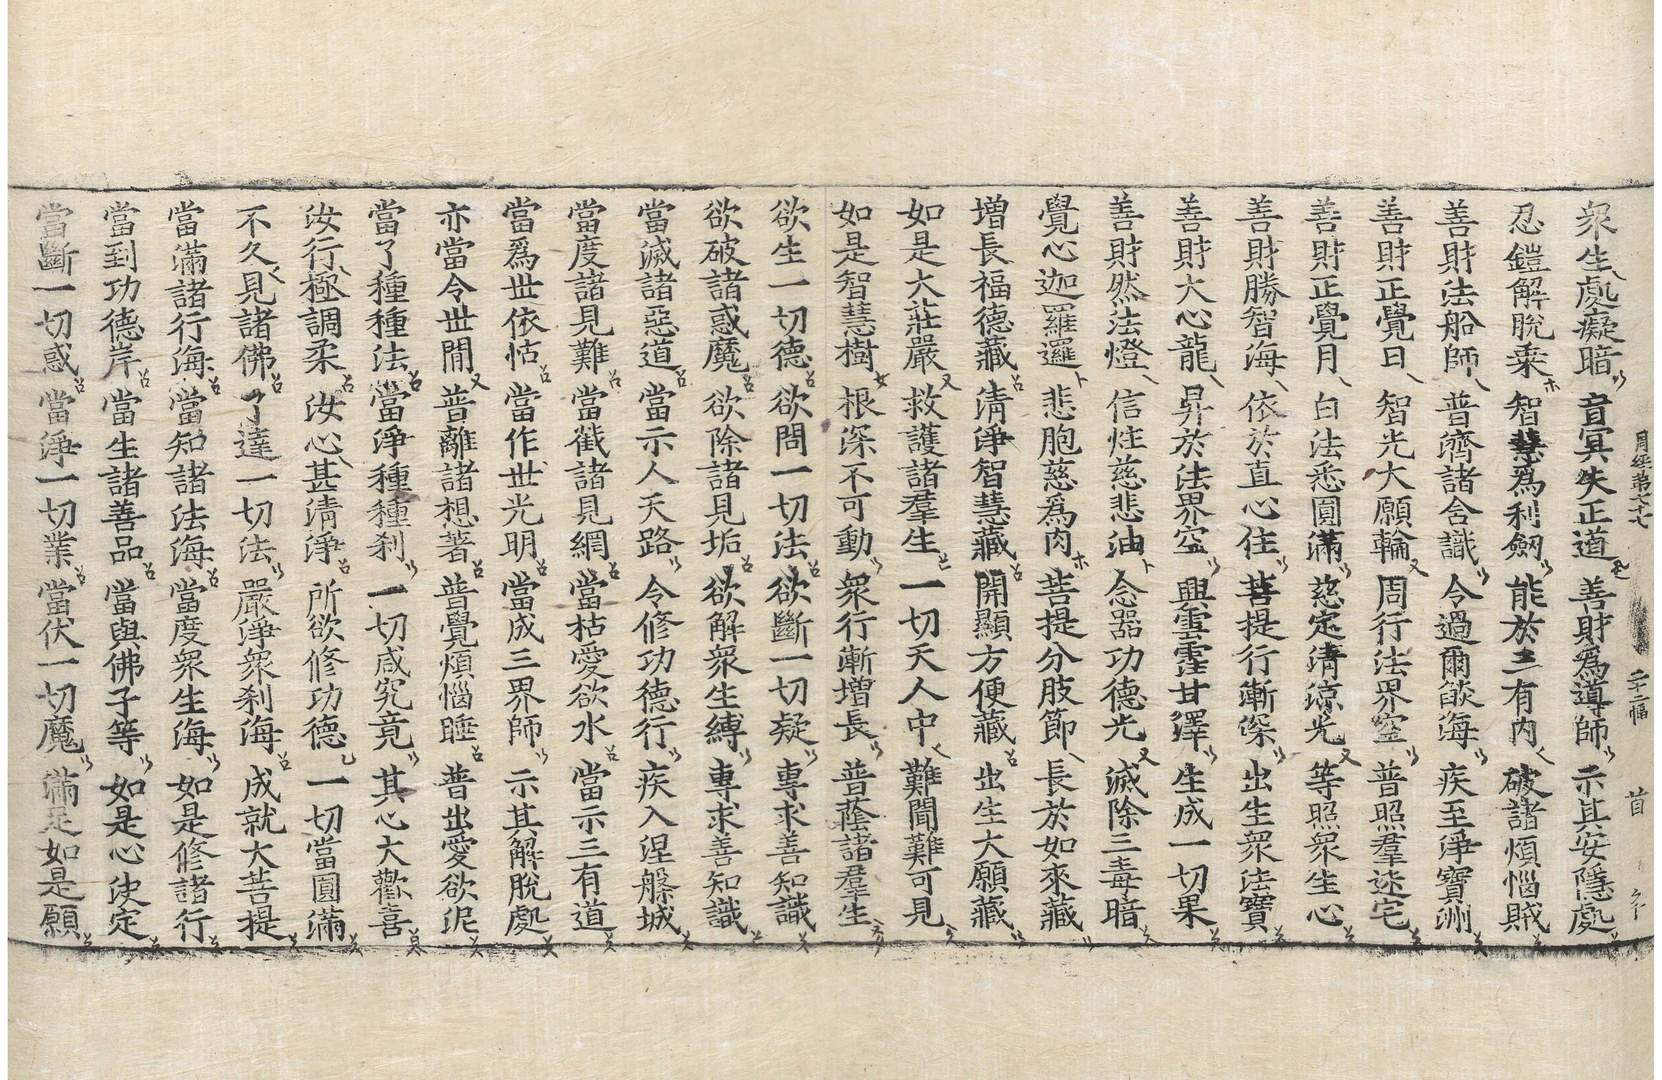 周經第七十七 二十二幅 首
衆生處癡暗 盲冥失正道 善財爲導師 示其安隱處
忍鎧解脫乘 智慧爲利劒 能於三有內 破諸煩惱賊
善財法船師 普濟諸含識 令過爾燄海 疾至淨寶洲
善財正覺日 智光大願輪 周行法界空 普照羣迷宅
善財正覺月 白法悉圓滿 慈定清涼光 等照衆生心
善財勝智海 依於直心住 菩提行漸深 出生衆法寶
善財大心龍 昇於法界空 興雲霔甘澤 生成一切果
善財然法燈 信炷慈悲油 念器功德光 滅除三毒暗
覺心迦羅邏 悲胞慈爲肉 菩提分肢節 長於如來藏
增長福德藏 清淨智慧藏 開顯方便藏 出生大願藏
如是大莊嚴 救護諸羣生 一切天人中 難聞難可見
如是智慧樹 根深不可動 衆行漸增長 普蔭諸羣生
欲生一切德 欲問一切法 欲斷一切疑 專求善知識
欲破諸惑魔 欲除諸見垢 欲解衆生縛 專求善知識
當滅諸惡道 當示人天路 令修功德行 疾入涅槃城
當度諸見難 當截諸見網 當枯愛欲水 當示三有道
當爲世依怙 當作世光明 當成三界師 示其解脫處
亦當令世閒 普離諸想著 普覺煩惱睡 普出愛欲泥
當了種種法 當淨種種刹 一切咸究竟 其心大歡喜
汝行極調柔 汝心甚清淨 所欲修功德 一切當圓滿
不久見諸佛 了達一切法 嚴淨衆刹海 成就大菩提
當滿諸行海 當知諸法海 當度衆生海 如是修諸行
當到功德岸 當生諸善品 當與佛子等 如是心決定
當斷一切惑 當淨一切業 當伏一切魔 滿足如是願